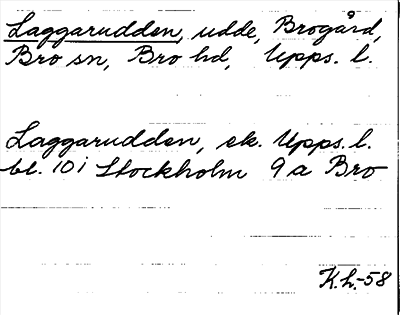 Laggarudden, udde, Brogård,
Bro sn, Bro hd, Upps. l.
Laggarudden, ek. Upps. l.
bl. 10 i Stockholm 9 a Bro
K.h.-58